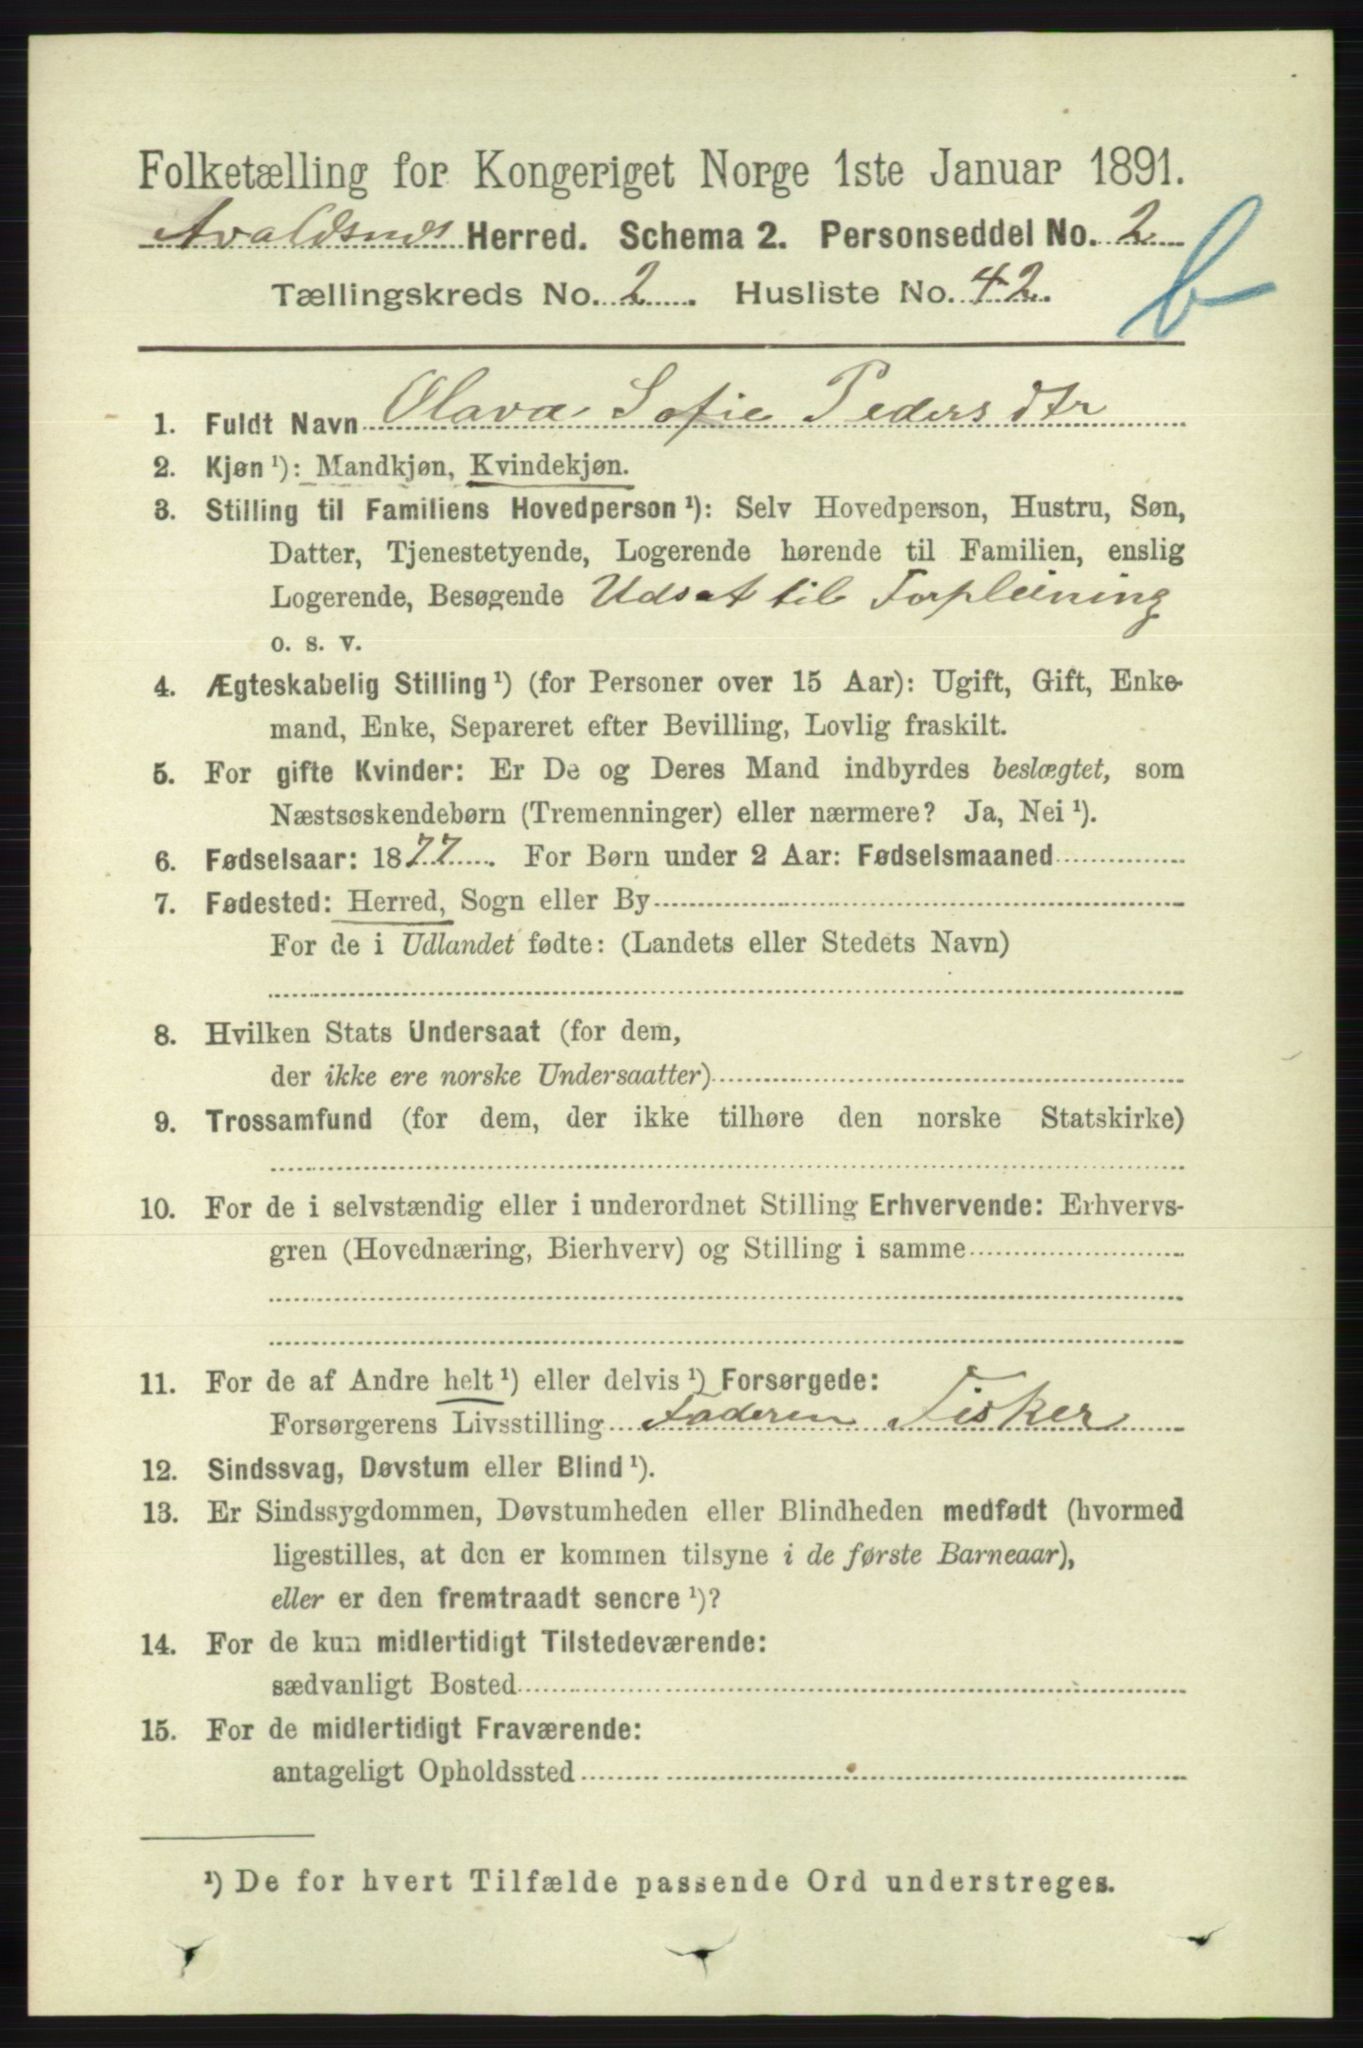 Folketælling for Kongeriget Norge 1ste Januar 1891.
Avaldsnes Herred. Schema 2. Personseddel No. 2
Tællingskreds No. 2. Husliste No. 42.
b
1. Fuldt Navn Olava Sofie Pedersdtr
2. Kjøn ¹): Mandkjøn, Kvindekjøn.
3. Stilling til Familiens Hovedperson ¹): Selv Hovedperson, Hustru, Søn,
Datter, Tjenestetyende, Logerende hørende til Familien, enslig
Logerende, Besøgende Udsat til Forpleining
o. s. v.
4. Ægteskabelig Stilling ¹) (for Personer over 15 Aar): Ugift, Gift, Enke-
mand, Enke, Separeret efter Bevilling, Lovlig fraskilt.
5. For gifte Kvinder: Er De og Deres Mand indbyrdes beslægtet, som
Næstsøskendebørn (Tremenninger) eller nærmere? Ja, Nei ¹).
6. Fødselsaar: 1877. For Børn under 2 Aar: Fødselsmaaned
7. Fødested: Herred, Sogn eller By
For de i Udlandet fødte: (Landets eller Stedets Navn)
8. Hvilken Stats Undersaat (for dem,
der ikke ere norske Undersaatter)
9. Trossamfund (for dem, der ikke tilhøre den norske Statskirke)
10. For de i selvstændig eller i underordnet Stilling Erhvervende: Erhvervs-
gren (Hovednæring, Bierhverv) og Stilling i samme
11. For de af Andre helt ¹) eller delvis ¹) Forsørgede:
Forsørgerens Livsstilling Faderen Fisker
12. Sindssvag, Døvstum eller Blind ¹).
13. Er Sindssygdommen, Døvstumheden eller Blindheden medfødt (hvormed
ligestilles, at den er kommen tilsyne i de første Barneaar),
eller er den fremtraadt senere ¹)?
14. For de kun midlertidigt Tilstedeværende:
sædvanligt Bosted
15. For de midlertidigt Fraværende:
antageligt Opholdssted
¹) De for hvert Tilfælde passende Ord understreges.